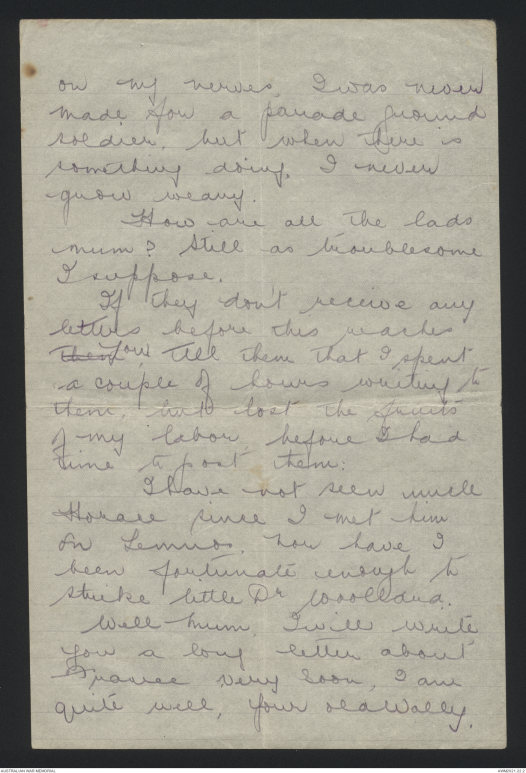 on my nerves, I was never
made for a parade ground
soldier, but when there is
something doing, I never
grow weary.
How are all the lads
mum? Still as troublesome
I suppose.
If they don't receive any
letters before this reaches
them you, tell them that I spent
a couple of hours writing to
them, but lost the fruits
of my labor before I had
time to post them:
I have not seen uncle
Horace since I met him
on Lemnos, nor have I
been fortunate enough to
strike little Dr
Well Mum, I will write
you a long letter about
France very soon, I am
quite well, your old Wally.
AUSTRALIAN WAR MEMORIAL